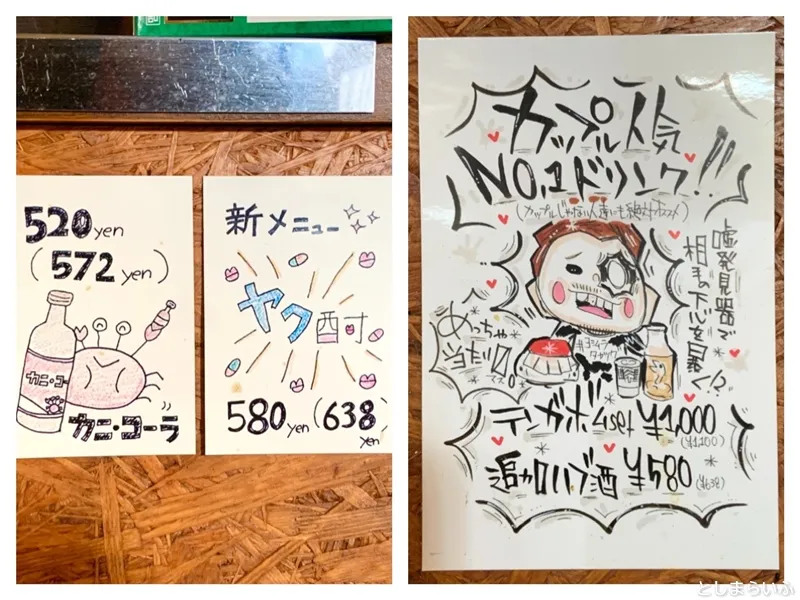 520 yen
(572 yen)
カニ・コー
カニ・コーラ
新メニュー
ヤク酎
580 yen (638 yen)
カップル人気
NO.1ドリンク!!
(カップルじゃない人達にも絶対オススメ)
嘘発見器で
相手の下心を暴く!?
めっちゃ
当たり口
マス。
テンガボムset ¥1,000
(¥1,100)
追加ハブ酒 ¥580 (¥638)
としまらいふ